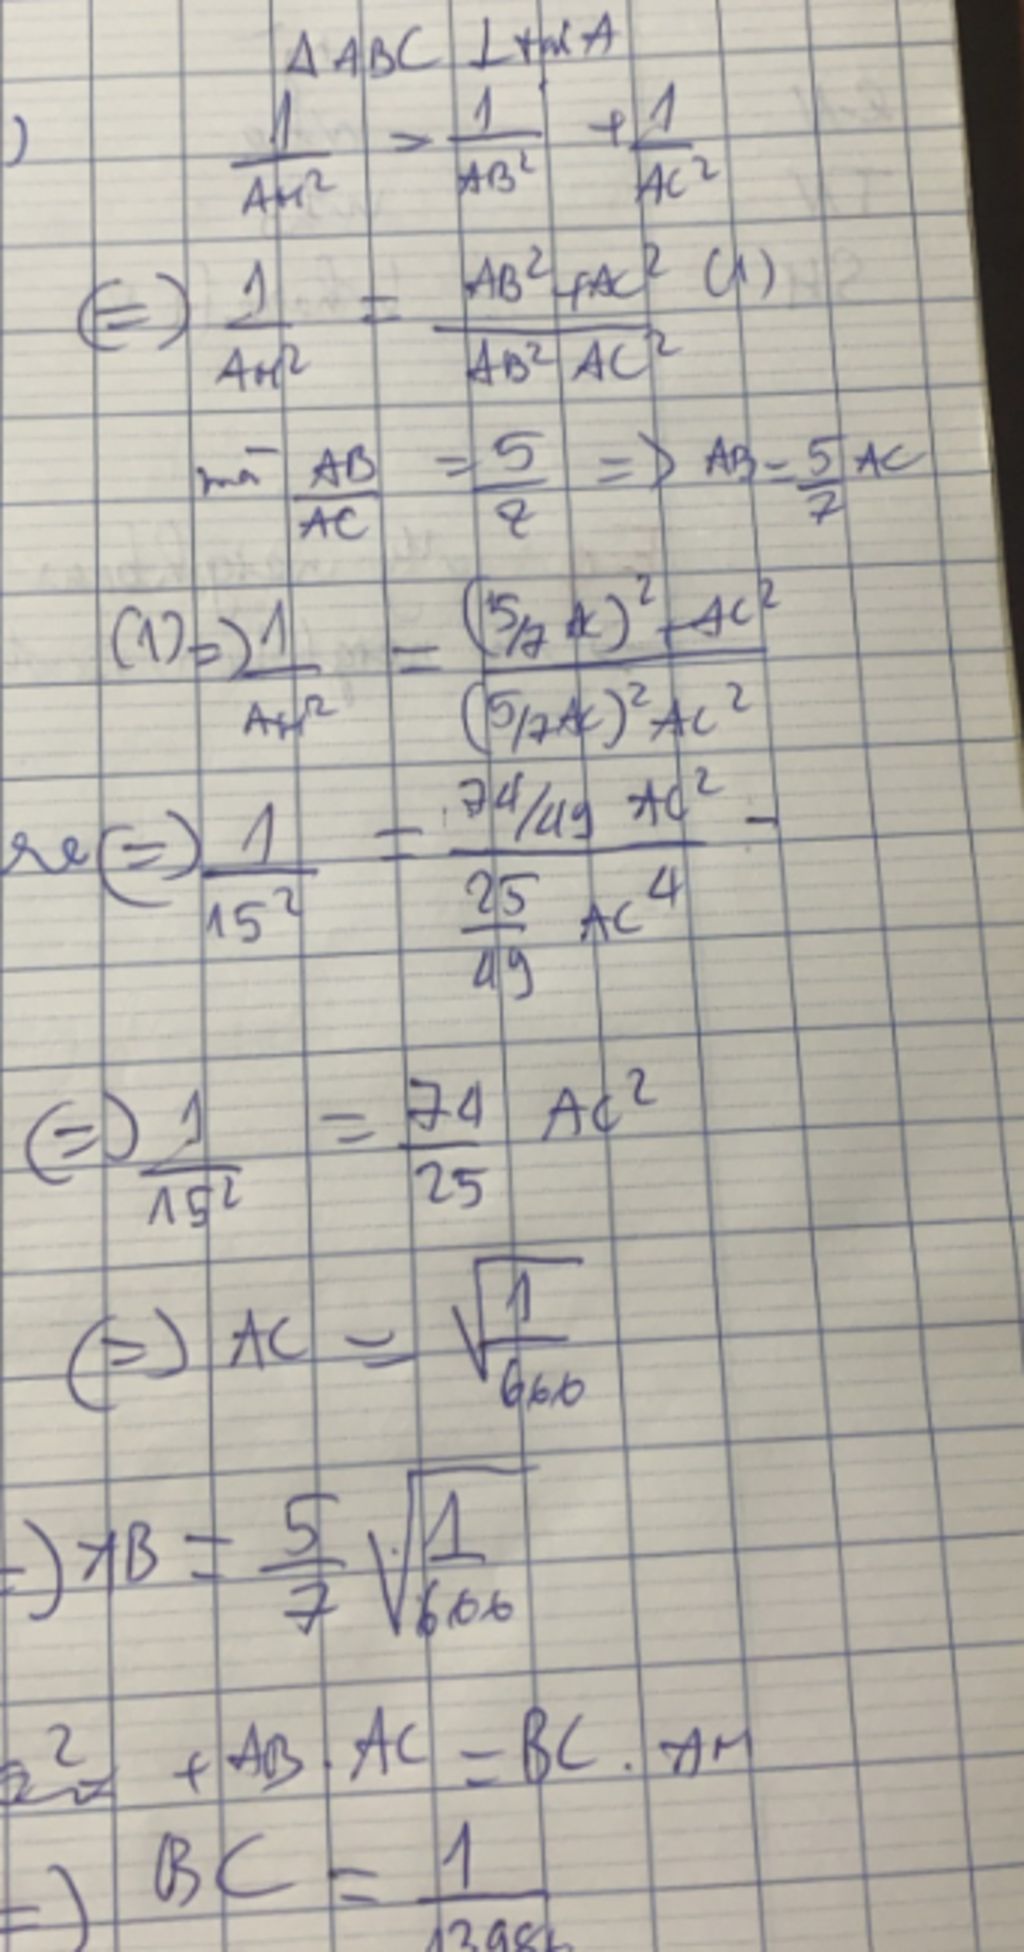 Δ ABC ⊥ tại A
) 1/AH² = 1/AB² + 1/AC²
(=) 1/AH² = (AB² + AC²)/(AB² AC²) (1)
mà AB/AC = 5/7 => AB = 5/7 AC
(1) =) 1/AH² = ((5/7 AC)² + AC²)/((5/7 AC)² AC²)
(=) 1/15² = (74/49 AC²)/(25/49 AC⁴) -
(=) 1/15² = 74/25 AC²
(=) AC = √(1/666)
=) AB = 5/7 √(1/666)
2 + AB . AC = BC . AH
=) BC = 1/